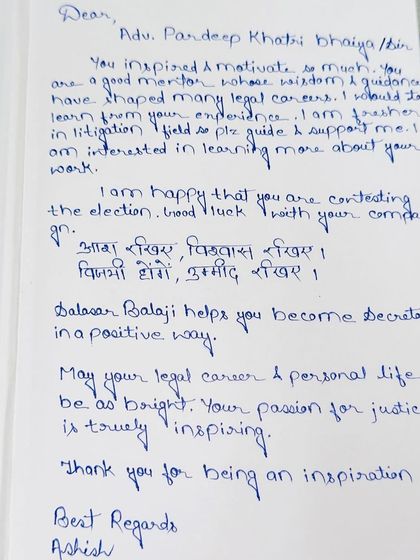 Dear,
Adv. Pardeep Khatri bhaiya/Sir
You inspired & motivate so much. You
are a good mentor whose wisdom & guidanc
have shaped many legal careers. I would to
learn from your experience. I am fresher
in litigation field so plz guide & support me. I
am interested in learning more about your
work.
I am happy that you are contesting
the election. Good luck with your compa
gn.
आश रखिए, विश्वास रखिए।
विजयी होंगे, उम्मीद रखिए।
Salasar Balaji helps you become Secreta
in a positive way.
May your legal career & personal life
be as bright. Your passion for justic
is truely inspiring.
Thank you for being an inspiration
Best Regards
Ashish